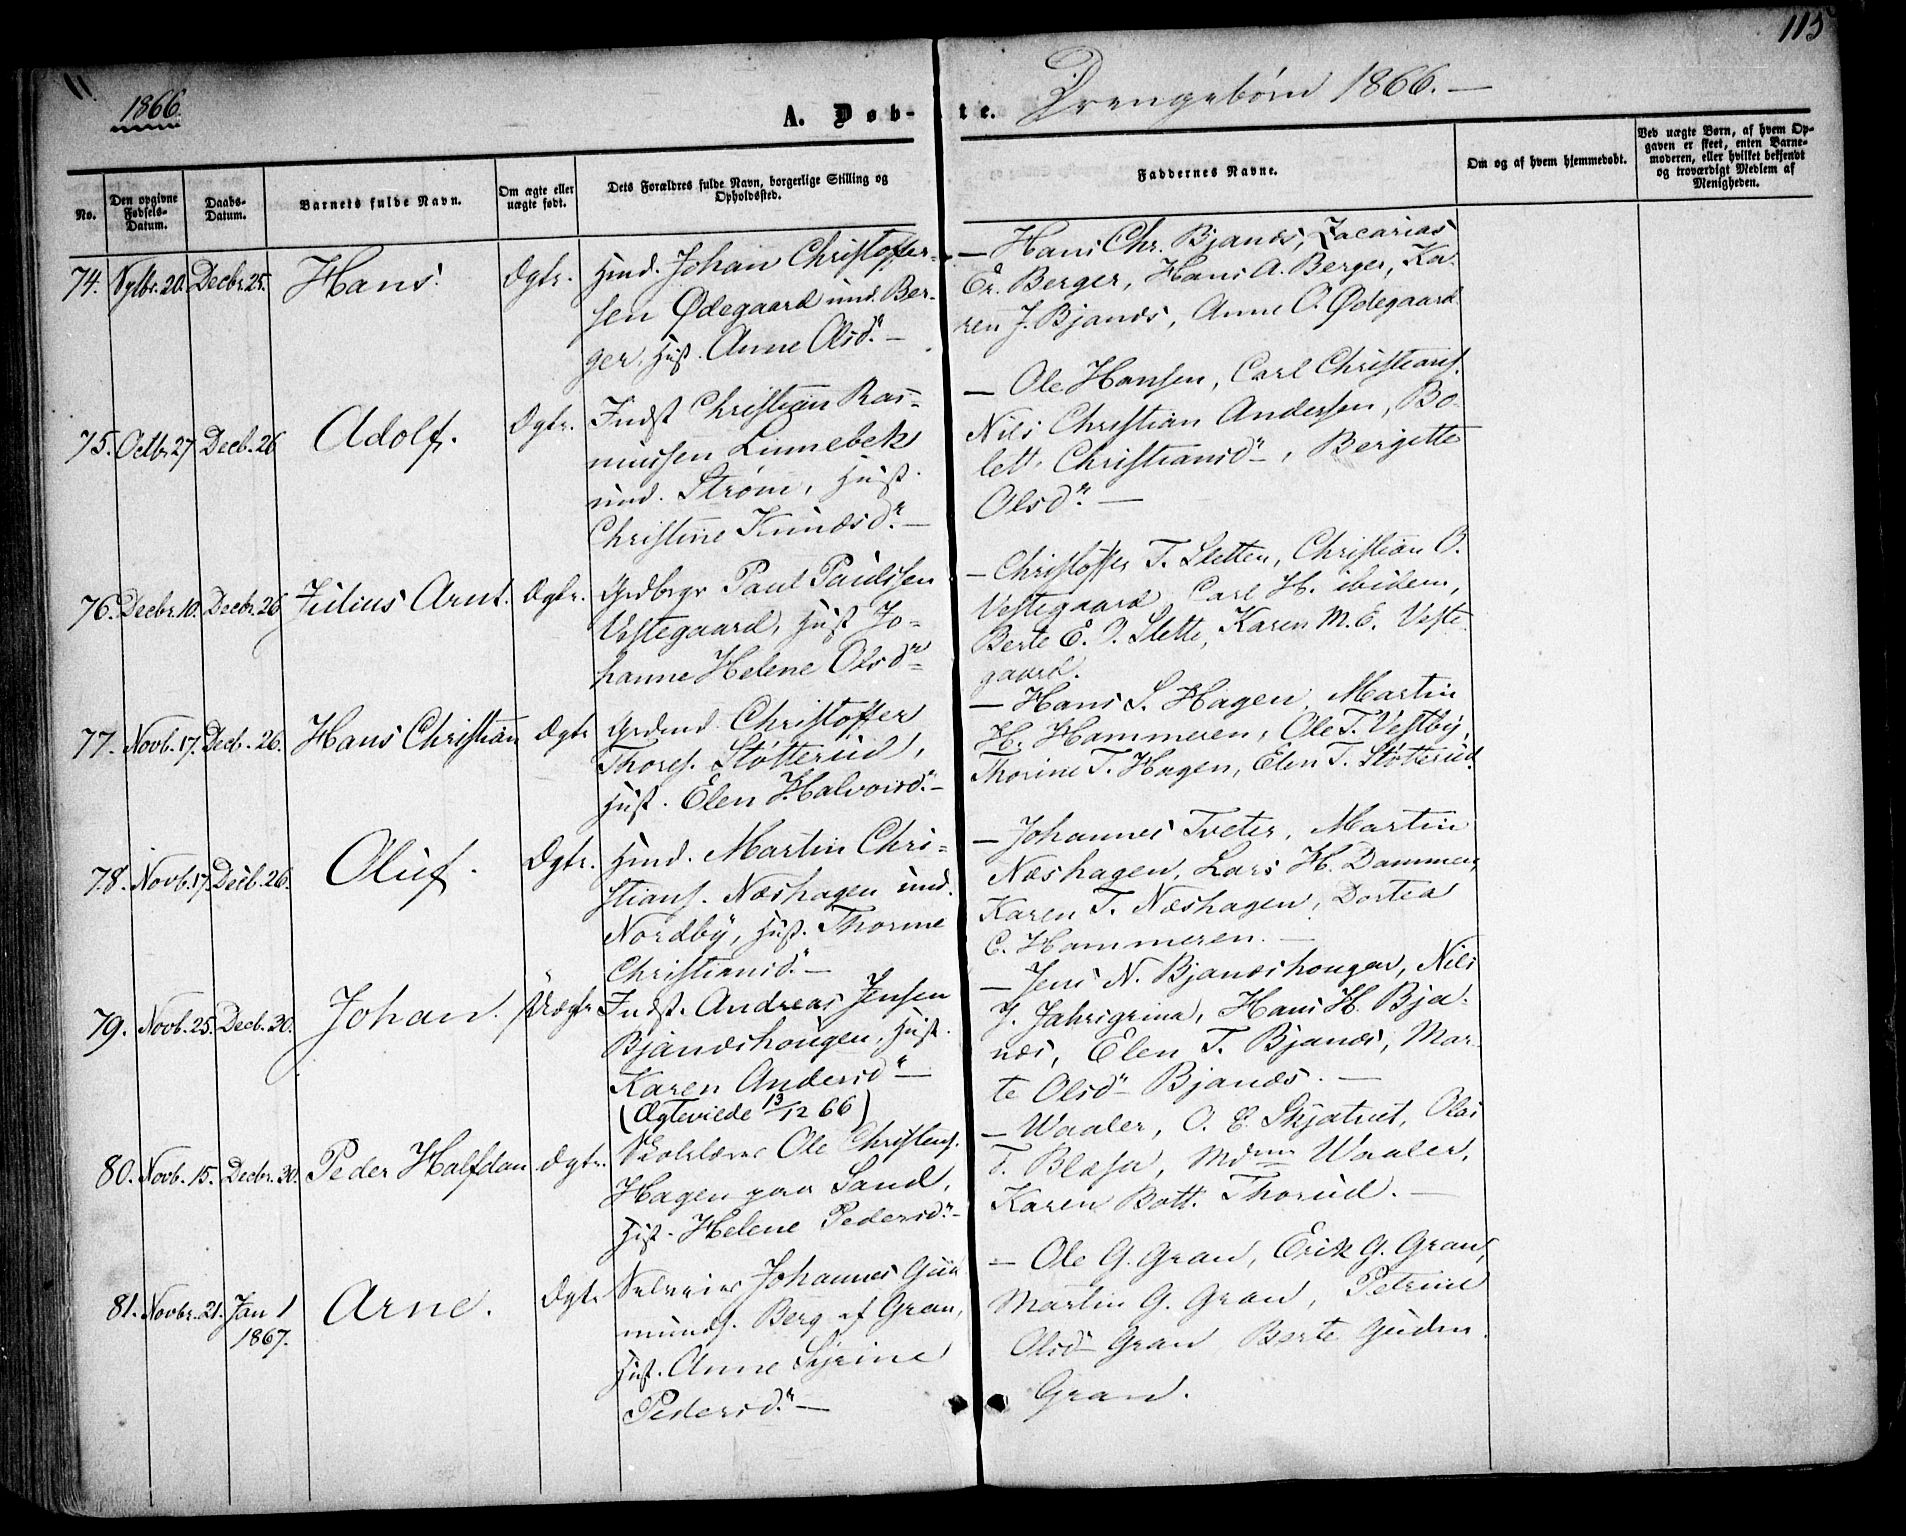 115
1866
A. Døbte.
Drengebörn 1866. —
No.
Den opgivne Fødsels-Datum.
Daabs-Datum.
Barnets fulde Navn.
Om ægte eller uægte født.
Dets Forældres fulde Navn, borgerlige Stilling og Opholdssted.
Faddernes Navne.
Om og af hvem hjemmedøbt.
Ved uægte Børn, af hvem Op-
gaven er skeet, enten Barne-
moderen, eller hvilket bekjendt
og troværdigt Medlem af
Menigheden.
74. 20. Decbr. 25. Hans. Ægte.
Hmd. Johan Christoffer-
sen Ødegaard und. Ber-
ger, Hust. Anne Olsd. —
— Hans Chr. Bjanæs, Zacarias
Er. Berger, Hans A. Berger, Ka-
ren J. Bjanæs, Anne O. Ødegaard
75. Octbr. 27. Decb. 26 Adolf. Ægte.
Indst Christian Ras-
mussen Linnebek
und. Strøm, Hust.
Christine Knudsd. —
— Ole Hansen, Carl Christians.
Nils Christian Andersen, Bo-
lett. Christiansd., Bergitte
Olsd. —
76. Decbr. 10. Decbr. 26 Julius Arnt. Ægte.
Grdbrgr Paul Paulssen
Vestegaard, Hust Jo-
hanne Helene Olsd.
— Christoffer T. Sletten, Christian O.
Vestegaard Carl H. ibidem,
Berte E. Slette, Karen M. E. Veste-
gaard.
77. Novb. 17. Decb. 26. Hans Christian Ægte
Grdmd Christoffer
Thores. Støtterud,
Hust. Elen Halvorsd. —
— Hans S. Hagen, Martin
H. Hammeren, Ole T. Vestby,
Thorine T. Hagen, Elen T. Støtterud.
78. Novb. 17. Decb. 26. Oluf. Ægte.
Hmd. Martin Chri-
stians. Næshagen und.
Nordby, Hust. Thorine
Christiansd. —
— Johannes Tveter, Martin
Næshagen, Lars H. Dammen,
Karen T. Næshagen, Dortea
C. Hammeren. —
79. Novb. 25. Decb. 30. Johan. Uægte
Indst. Andreas Jensen
Bjanæshougen, Hust.
Karen Andersd —
(Ægteviede 13/12 66)
— Jens N. Bjanæshougen, Nils
J. Jahrsgrina, Hans H. Bja-
næs, Elen T. Bjanæs, Mar-
te Olsd Bjanæs. —
80. Novb. 15. Decbr. 30. Peder Halfdan Ægte.
Skolelærer Ole Christens.
Hagen paa Sand,
Hust. Helene Pedersd. —
— Waaler, O. E. Skjatvet, Olai
T. Blæsa, Mdme Waaler,
Karen Bott. Thorud. —
81. Novbr. 21. Jan 1
1867.
Arne. Ægte
Selveier Johannes Gud-
munds. Berg af Gran,
Hust. Anne Syrine
Pedersd. —
— Ole G. Gran, Erik G. Gran,
Martin G. Gran, Petrine
Olsd Gran Berte Gudm.
Gran.